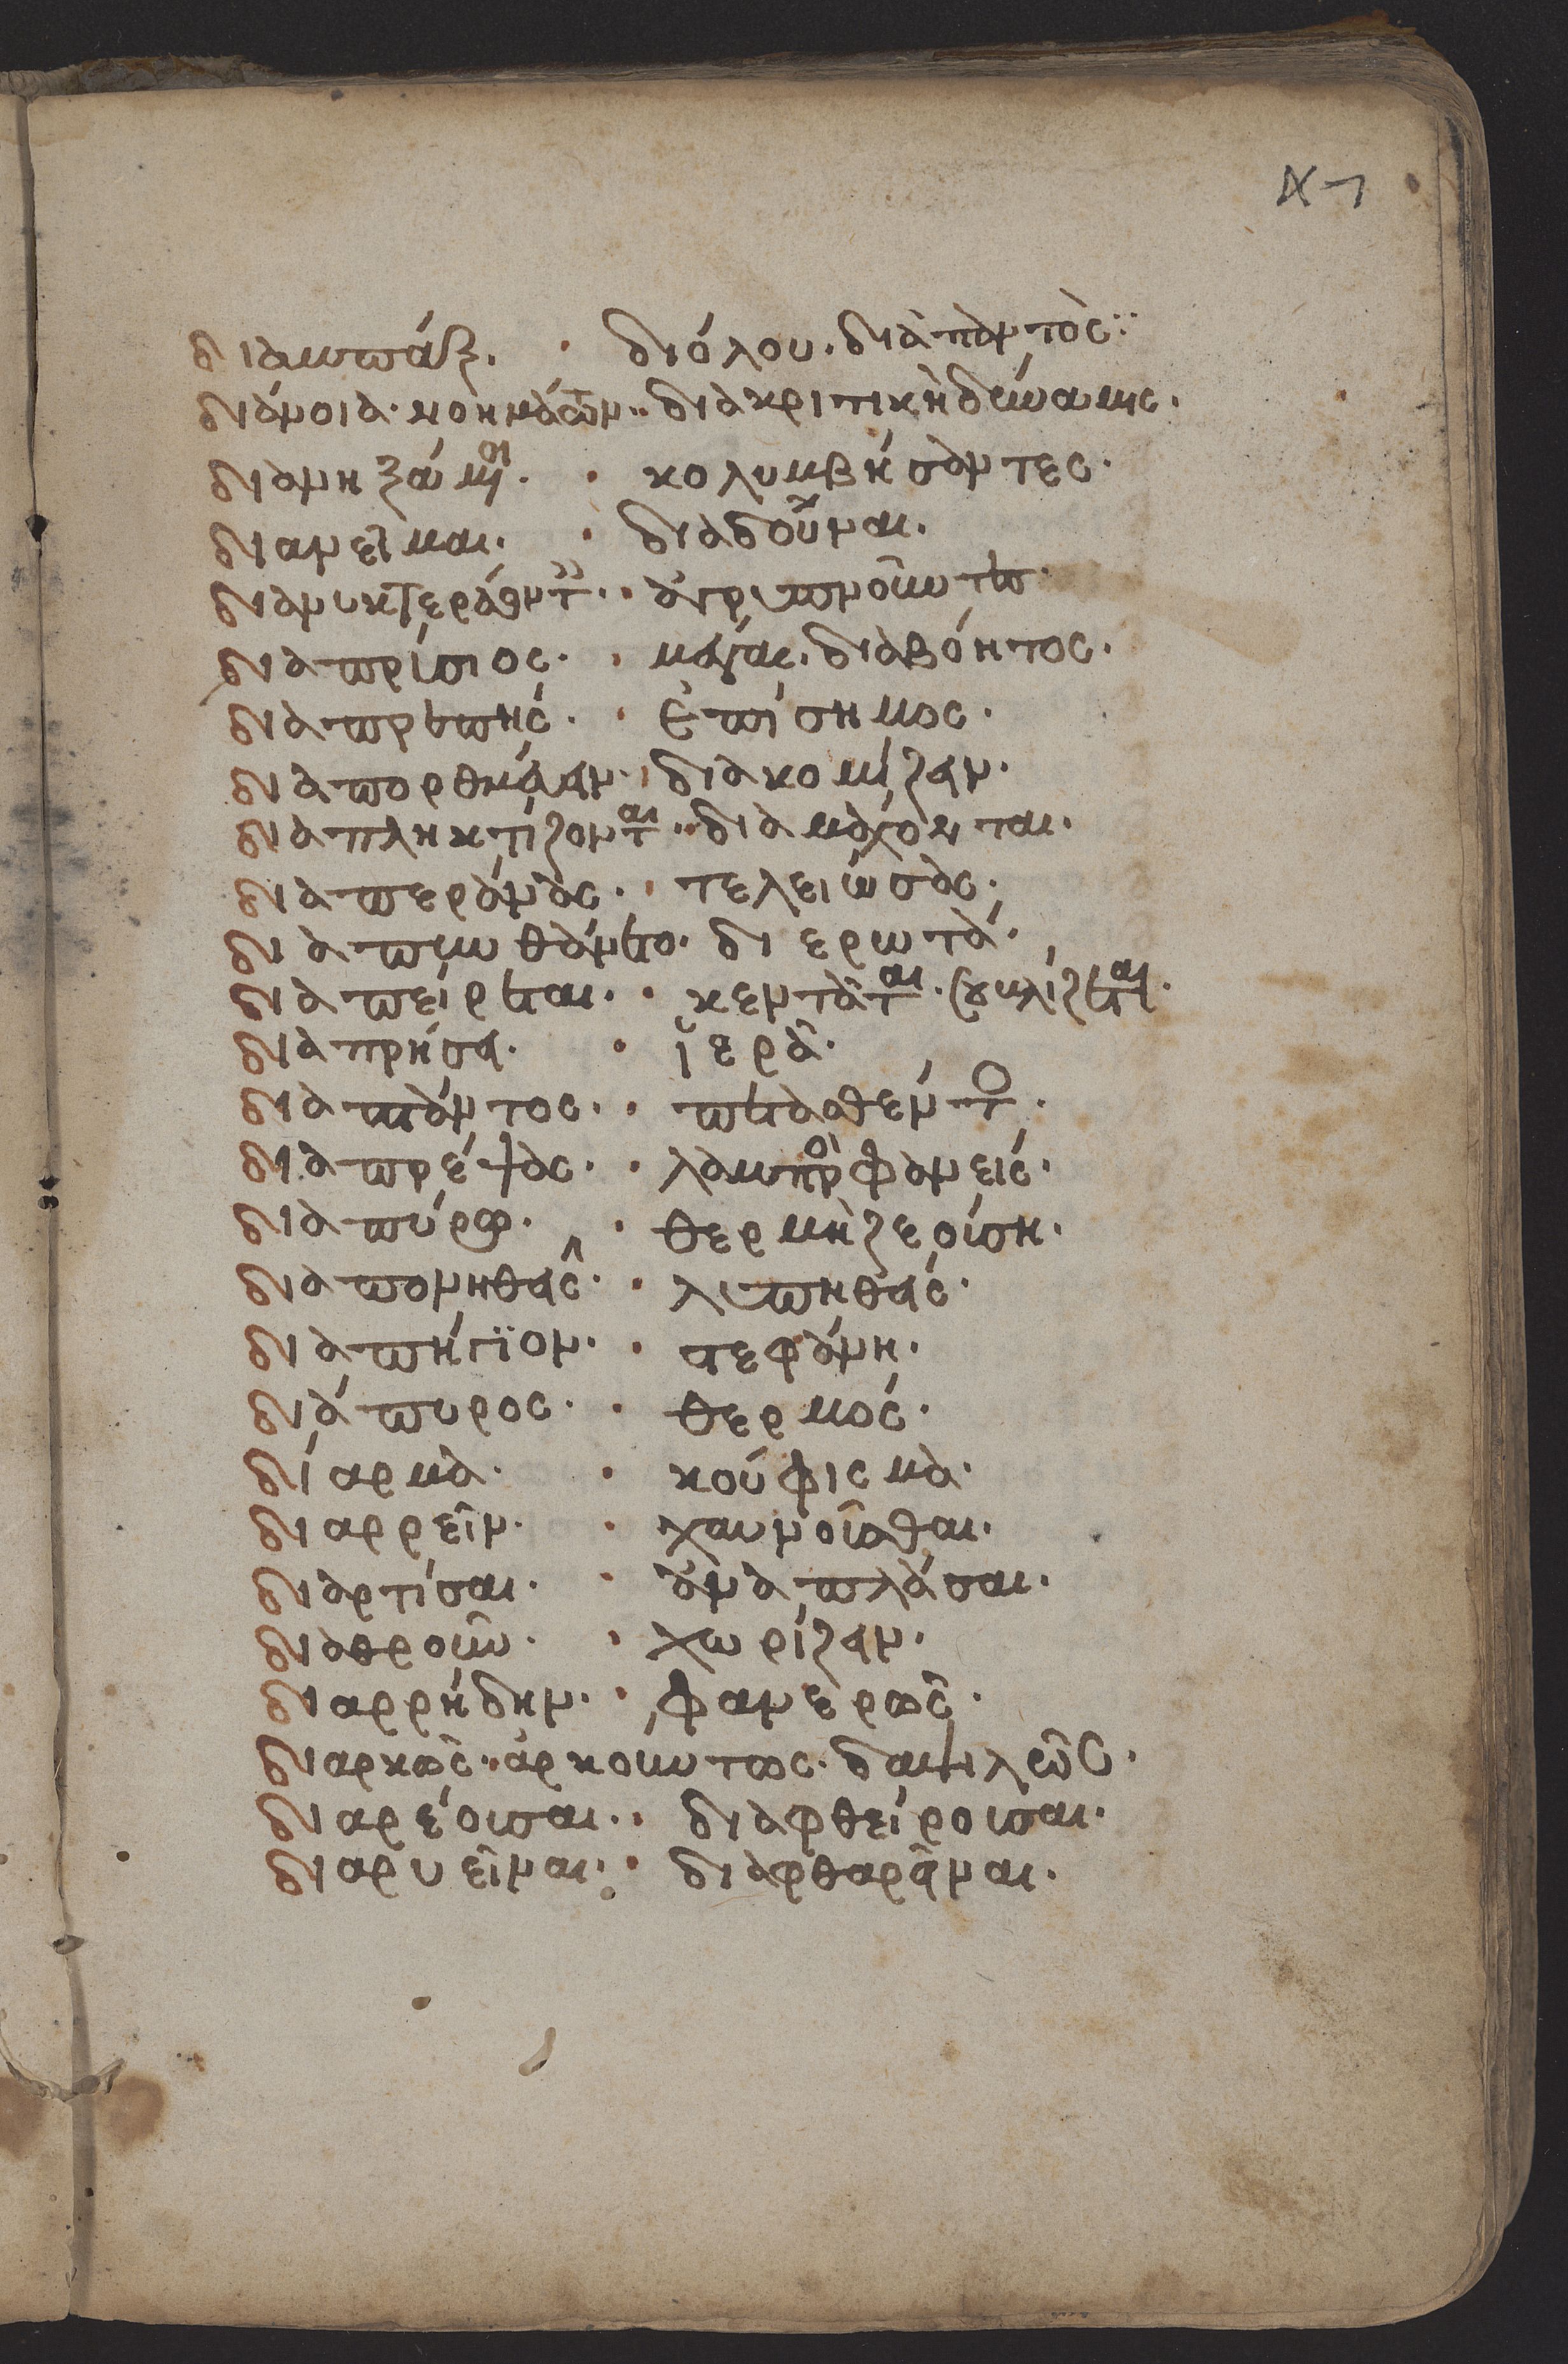 διαμπάξ. διόλου. διὰ παντὸς:
διάνοια. νοημάτων. διακριτικὴ δύναμις.
διανηξάμενοι. κολυμβήσαντες.
διανεῖμαι. διαδοῦναι.
διανυκτερεύοντες. ἀγρυπνοῦντες
διαπρύσιος. μέγας. διαβόητος.
διαπρεπής. ἐπίσημος.
διαπορθμεύειν. διακομίζειν.
διαπληκτίζονται. διαμάχονται.
διαπεράνας. τελειώσας.
διαπυνθάνεται. διερωτᾶ.
διαπείρεται. κεντᾶται.
διαπρήσει.
διαπαντὸς.
διαπρέψας. λαμπρὸς φανείς.
διαπύρω. θερμῆ ζεούση.
διαπονηθεῖς. λυπηθείς.
διαπήγιον. στεφάνη.
διάπυρος. θερμός.
δίαρμα. κούφισμα.
διαρρεῖν. χαυνοῦσθαι.
διαρτίσαι. ἀναπλάσαι.
διαθροῦν. χωρίζειν.
διαρρήδην. φανερῶς.
διαρκῶς. ἀρκούντως. δαψιλῶς.
διαρέουσαι. διαφθείρουσαι.
διαρυεῖναι. διαφθαρεῖναι.